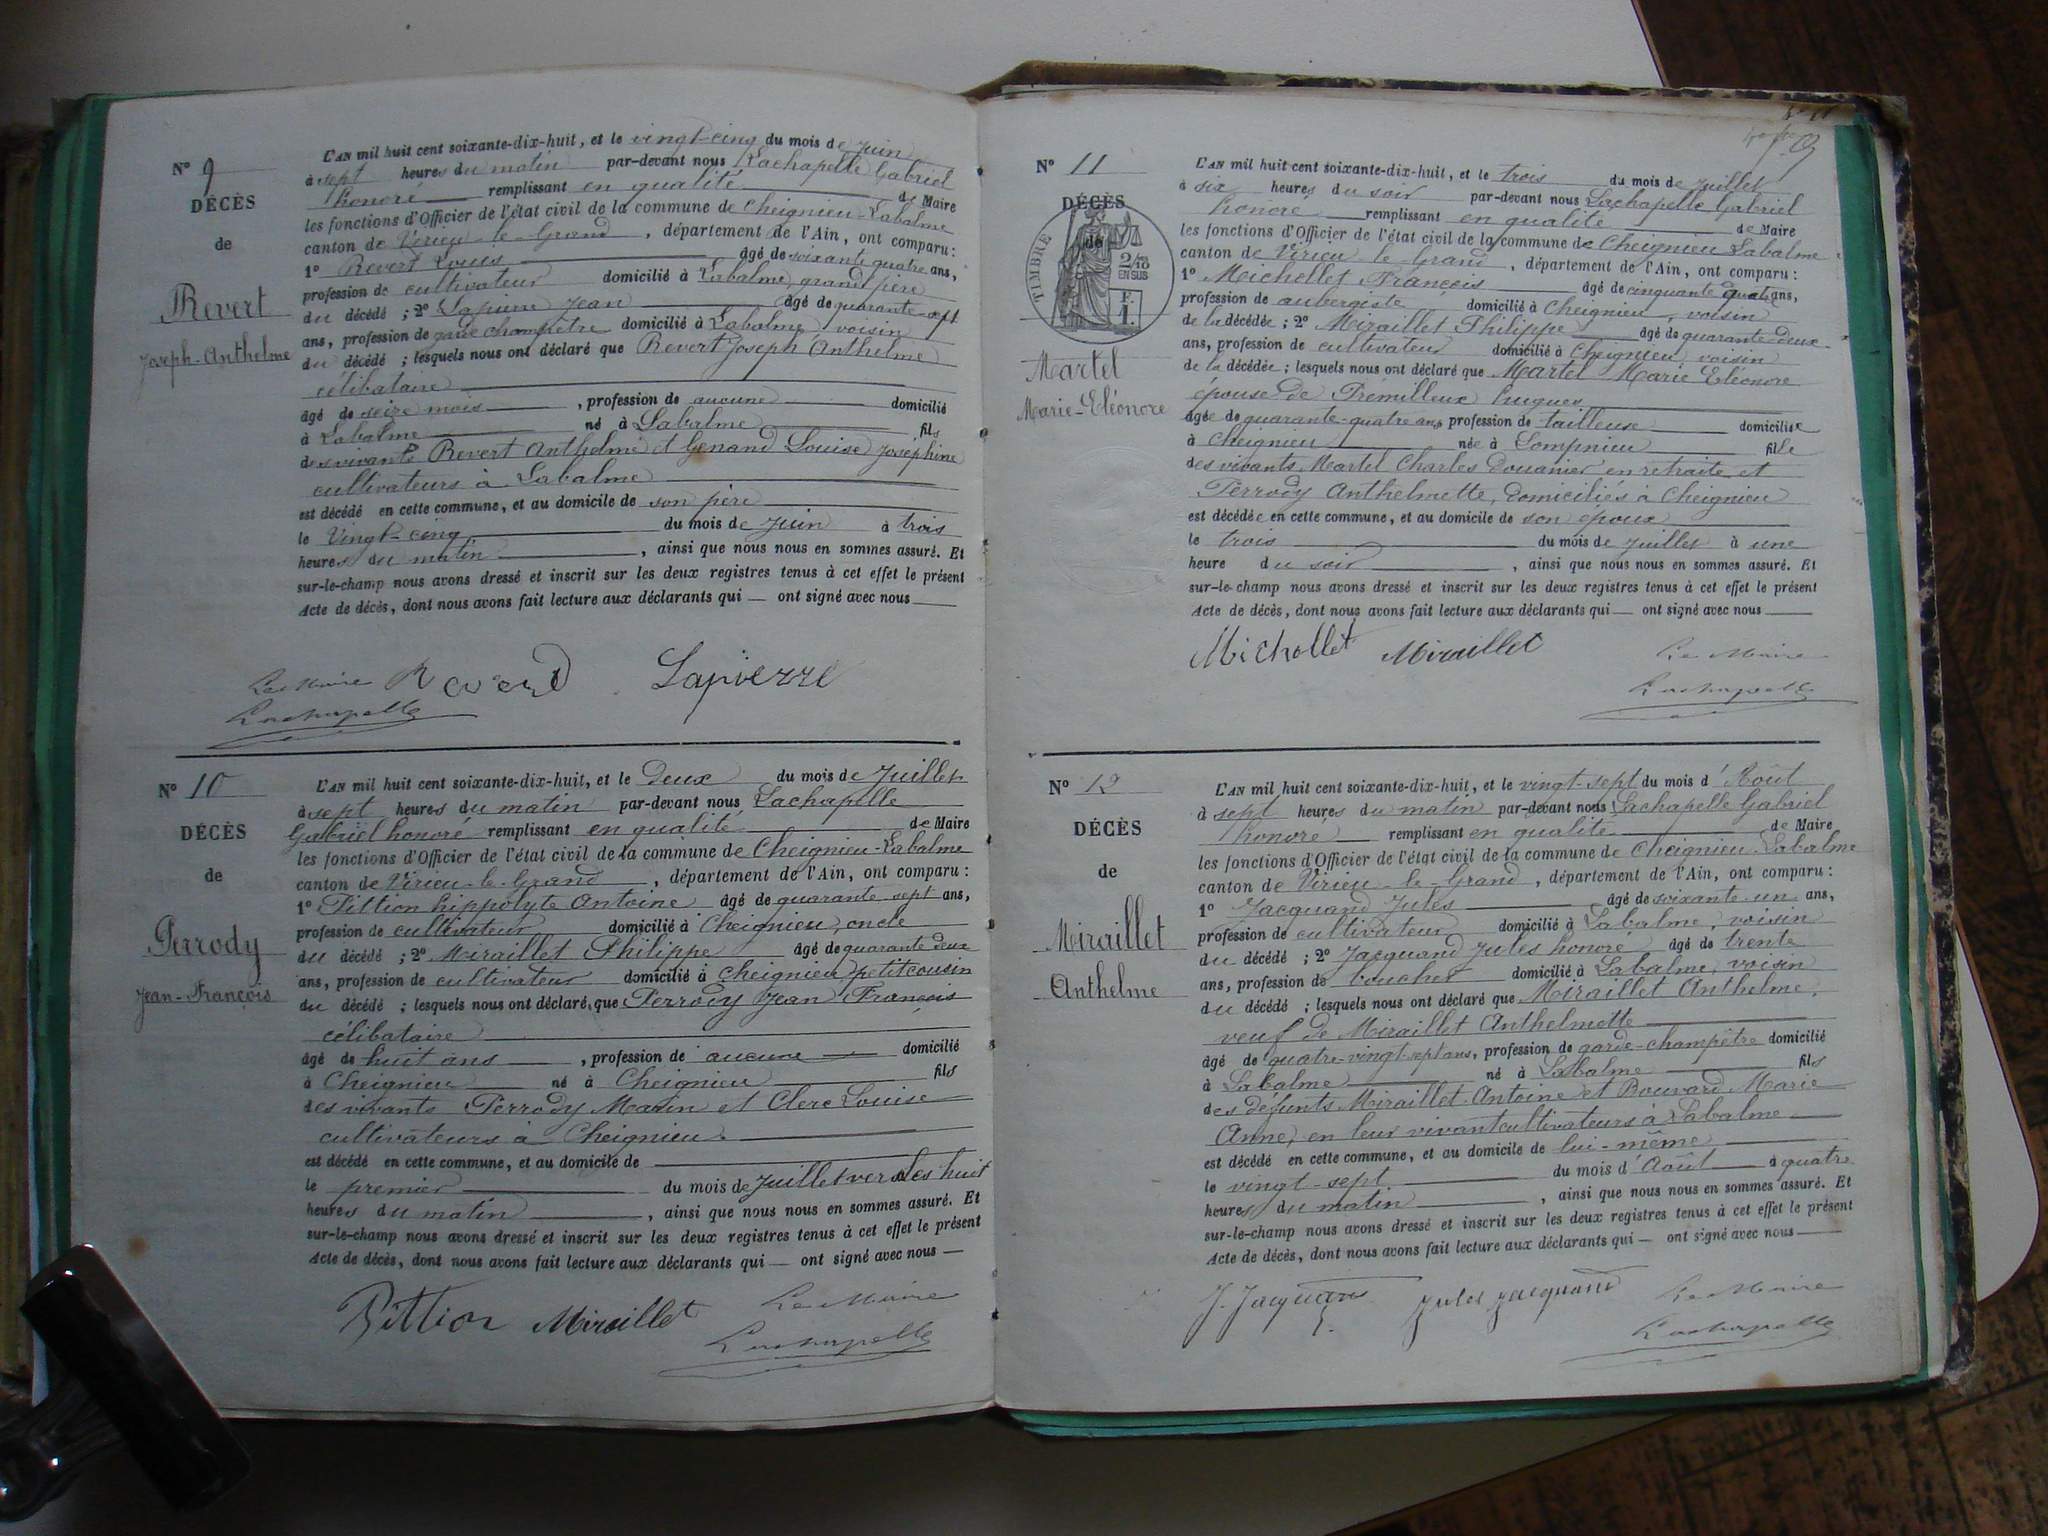 N° 9
DÉCÈS
de
Revert
Joseph-Anthelme
L'AN mil huit cent soixante-dix-huit, et le vingt-cinq du mois de Juin
à sept heures du matin par-devant nous Lachapelle Gabriel
honoré remplissant en qualité de Maire
les fonctions d'Officier de l'état civil de la commune de Cheignieu-Labalme
canton de Virieu-le-Grand, département de l'Ain, ont comparu :
1° Revert Louis âgé de soixante quatre ans,
profession de cultivateur domicilié à Labalme, grand père
du décédé ; 2° Lapierre Jean âgé de quarante-sept
ans, profession de garde champêtre domicilié à Labalme, voisin
du décédé ; lesquels nous ont déclaré que Revert Joseph Anthelme
célibataire
âgé de seize mois, profession de aucune domicilié
à Labalme né à Labalme fils
des vivants Revert Anthelme et Genand Louise Joséphine
cultivateurs à Labalme
est décédé en cette commune, et au domicile de son père
le Vingt-cinq du mois de Juin à trois
heures du matin, ainsi que nous nous en sommes assuré. Et
sur-le-champ nous avons dressé et inscrit sur les deux registres tenus à cet effet le présent
Acte de décès, dont nous avons fait lecture aux déclarants qui — ont signé avec nous
Le Maire Lapierre
Lachapelle
N° 10
DÉCÈS
de
Perrody
Jean-François
L'AN mil huit cent soixante-dix-huit, et le Deux du mois de Juillet
à sept heures du matin par-devant nous Lachapelle
Gabriel honoré remplissant en qualité de Maire
les fonctions d'Officier de l'état civil de la commune de Cheignieu-Labalme
canton de Virieu-le-Grand, département de l'Ain, ont comparu :
1° Pittion hippolyte Antoine âgé de quarante-sept ans,
profession de cultivateur domicilié à Cheignieu, oncle
du décédé ; 2° Miraillet Philippe âgé de quarante deux
ans, profession de cultivateur domicilié à Cheignieu petit cousin
du décédé ; lesquels nous ont déclaré que Perrody Jean François
célibataire
âgé de huit ans, profession de aucune domicilié
à Cheignieu né à Cheignieu fils
des vivants Perrody Marin et Clerc Louise
cultivateurs à Cheignieu
est décédé en cette commune, et au domicile de
le premier du mois de Juillet vers les huit
heures du matin, ainsi que nous nous en sommes assuré. Et
sur-le-champ nous avons dressé et inscrit sur les deux registres tenus à cet effet le présent
Acte de décès, dont nous avons fait lecture aux déclarants qui — ont signé avec nous —
Pittion Miraillet Le Maire
Lachapelle
N° 11
DÉCÈS
de
TIMBRE
2/10
EN SUS
F.
1.
Martel
Marie-Eléonore
L'AN mil huit cent soixante-dix-huit, et le trois du mois de Juillet
à six heures du soir par-devant nous Lachapelle Gabriel
honoré remplissant en qualité de Maire
les fonctions d'Officier de l'état civil de la commune de Cheignieu Labalme
canton de Virieu-le-Grand, département de l'Ain, ont comparu :
1° Michollet François âgé de cinquante quatre ans,
profession de aubergiste domicilié à Cheignieu, voisin
de la décédée ; 2° Miraillet Philippe âgé de quarante-deux
ans, profession de cultivateur domicilié à Cheignieu, voisin
de la décédée ; lesquels nous ont déclaré que Martel Marie Eléonore
épouse de Prémilleux hugues
âgée de quarante-quatre ans, profession de tailleuse domiciliée
à Cheignieu née à Lompnieu fille
des vivants Martel Charles Douanier en retraite et
Perrody Anthelmette, domiciliés à Cheignieu
est décédée en cette commune, et au domicile de son époux
le trois du mois de Juillet à une
heure du soir, ainsi que nous nous en sommes assuré. Et
sur-le-champ nous avons dressé et inscrit sur les deux registres tenus à cet effet le présent
Acte de décès, dont nous avons fait lecture aux déclarants qui — ont signé avec nous
Michollet Miraillet Le Maire
Lachapelle
N° 12
DÉCÈS
de
Miraillet
Anthelme
L'AN mil huit cent soixante-dix-huit, et le vingt-sept du mois d'Août
à sept heures du matin par-devant nous Lachapelle Gabriel
honoré remplissant en qualité de Maire
les fonctions d'Officier de l'état civil de la commune de Cheignieu-Labalme
canton de Virieu-le-Grand, département de l'Ain, ont comparu :
1° Jacquand Jules âgé de soixante-un ans,
profession de cultivateur domicilié à Labalme, voisin
du décédé ; 2° Jacquand Jules honoré âgé de trente
ans, profession de boucher domicilié à Labalme, voisin
du décédé ; lesquels nous ont déclaré que Miraillet Anthelme,
veuf de Miraillet Anthelmette
âgé de quatre-vingt-sept ans, profession de garde-champêtre domicilié
à Labalme né à Labalme fils
des défunts Miraillet Antoine et Bouvard Marie
Anne, en leur vivant cultivateurs à Labalme
est décédé en cette commune, et au domicile de lui-même
le vingt-sept du mois d'Août à quatre
heures du matin, ainsi que nous nous en sommes assuré. Et
sur-le-champ nous avons dressé et inscrit sur les deux registres tenus à cet effet le présent
Acte de décès, dont nous avons fait lecture aux déclarants qui — ont signé avec nous
J. Jacquand Jules Jacquand Le Maire
Lachapelle